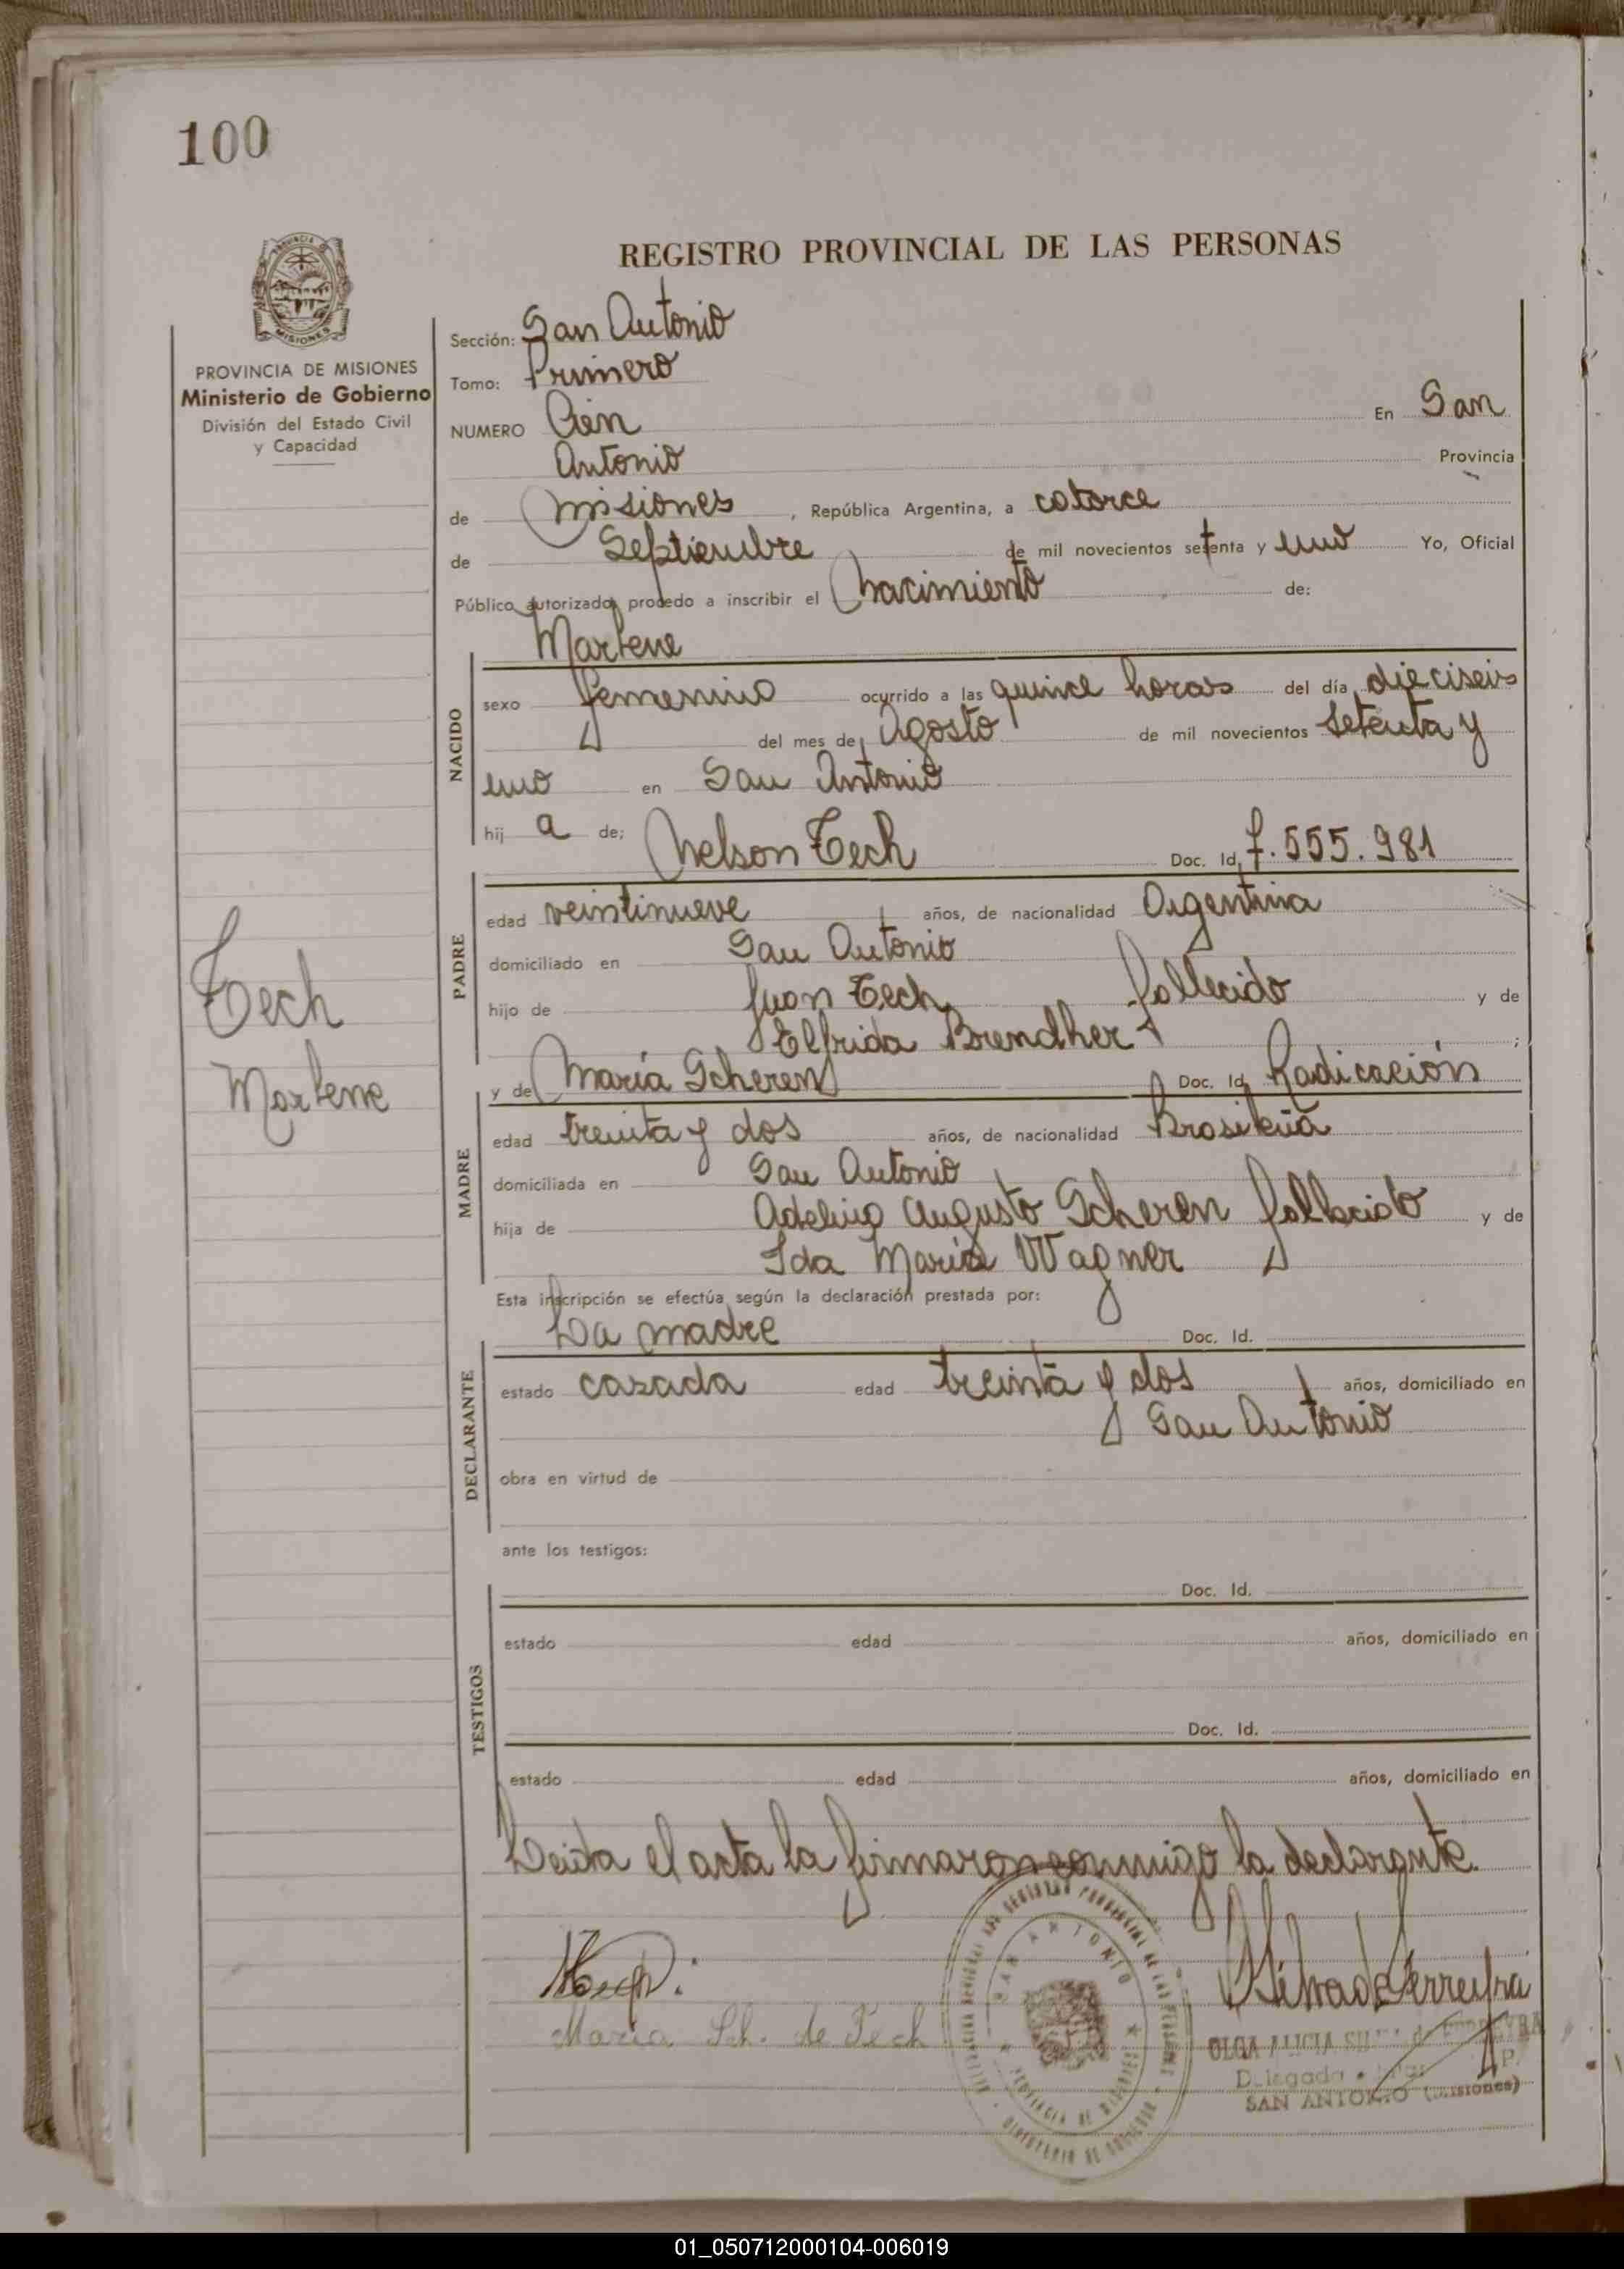 100
REGISTRO PROVINCIAL DE LAS PERSONAS
MISIONES
PROVINCIA DE MISIONES
Ministerio de Gobierno
División del Estado Civil
y Capacidad
Tech
Marlene
Sección: San Antonio
Tomo: Primero
NUMERO Cien En San
Antonio Provincia
de Misiones, República Argentina, a catorce
de Septiembre de mil novecientos setenta y uno Yo, Oficial
Público autorizado, procedo a inscribir el Nacimiento de:
Marlene
NACIDO
sexo femenino ocurrido a las quince horas del día dieciseis
del mes de Agosto de mil novecientos setenta y
uno en San Antonio
hij a de: Nelson Tech Doc. Id. 7.555.981
PADRE
edad veintinueve años, de nacionalidad Argentina
domiciliado en San Antonio
hijo de Juan Tech fallecido y de
Elfrida Brendher ;
y de María Scheren Doc. Id. Radicación
MADRE
edad treinta y dos años, de nacionalidad Brasileña
domiciliada en San Antonio
hija de Adelino Augusto Scheren fallecido y de
Ida María Wagner
Esta inscripción se efectúa según la declaración prestada por:
La madre Doc. Id.
DECLARANTE
estado casada edad treinta y dos años, domiciliado en
San Antonio
obra en virtud de
ante los testigos:
Doc. Id.
TESTIGOS
estado edad años, domiciliado en
Doc. Id.
estado edad años, domiciliado en
Leida el acta la firmaron conmigo la declarante.
María Sch. de Tech
SAN ANTONIO
PROVINCIA DE MISIONES
OLGA ALICIA
Delegada
SAN ANTONIO (Misiones)
01_050712000104-006019